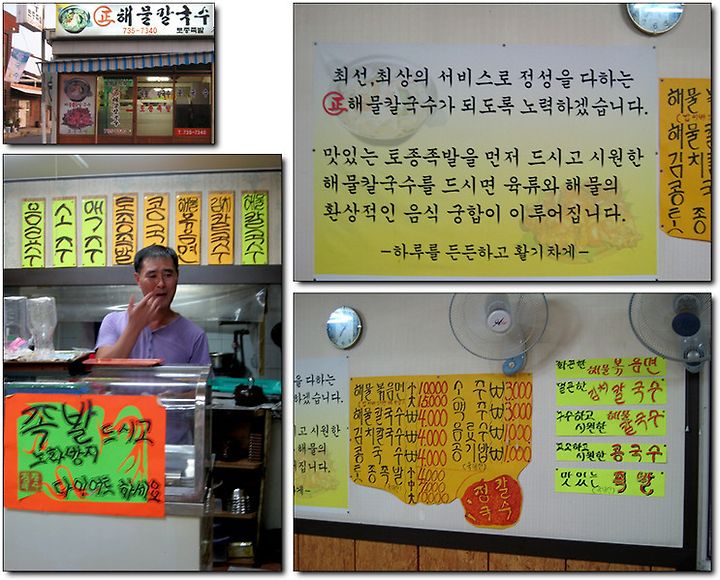 正 해물칼국수
735-7340 토종족발
T.735-7340
최선,최상의 서비스로 정성을 다하는
正해물칼국수가 되도록 노력하겠습니다.
맛있는 토종족발을 먼저 드시고 시원한
해물칼국수를 드시면 육류와 해물의
환상적인 음식 궁합이 이루어집니다.
-하루를 든든하고 활기차게-
음료수
소주
맥주
토종족발
콩국수
해물볶음면
김치칼국수
해물칼국수
족발 드시고
노화방지
다이어트 하세요
해물볶음면 大 10000 소주 ₩3000
小 5000 맥주 ₩3000
해물칼국수 ₩4,000 음료수 ₩1000
김치칼국수 ₩4,000 공기밥 ₩1,000
콩국수 ₩4,000
토종족발
정칼국수
화끈한 해물볶음면
얼큰한 김치칼국수
구수하고 시원한 해물칼국수
고소하고 시원한 콩국수
맛있는 족발